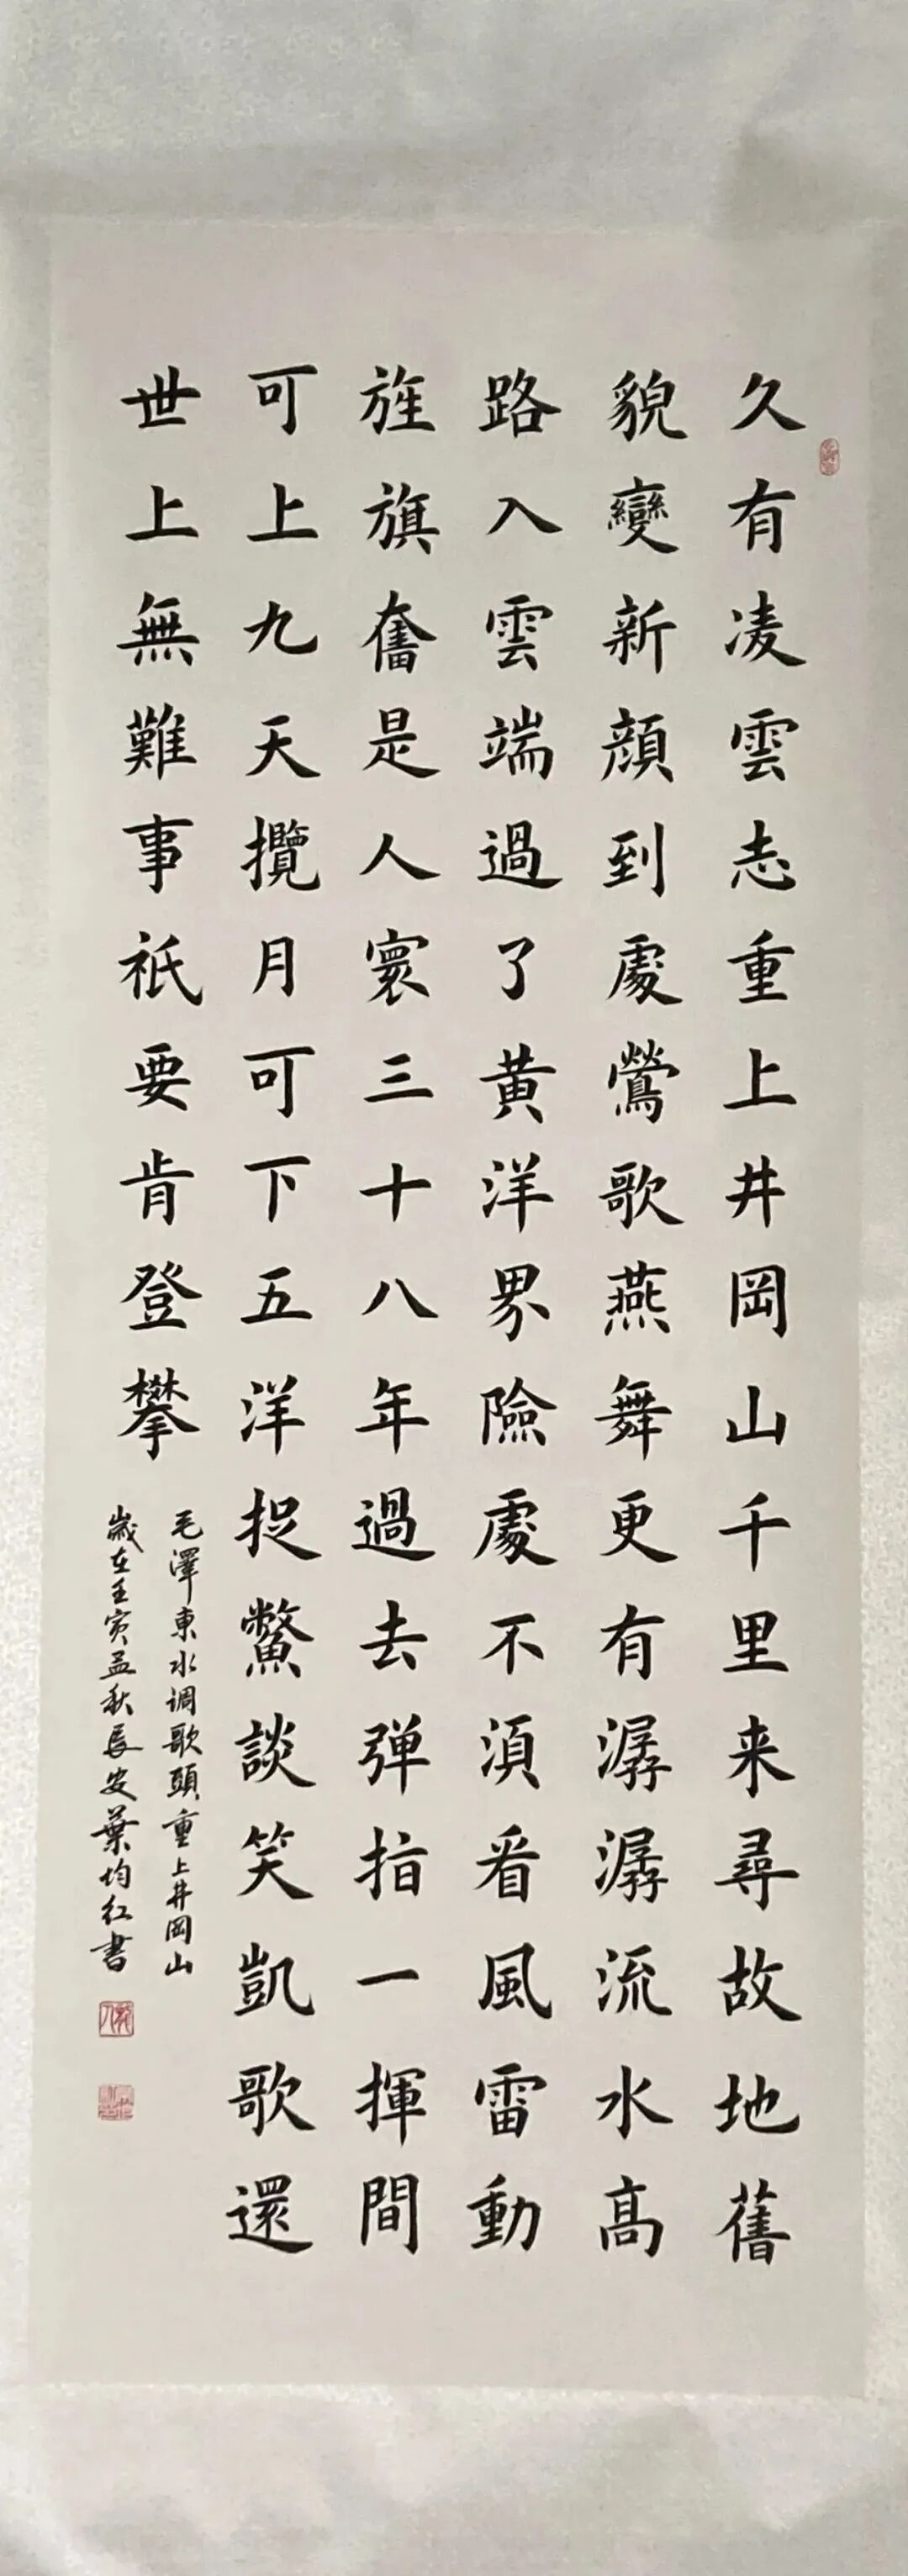 久有凌雲志重上井岡山千里来尋故地舊
貌變新顔到處鶯歌燕舞更有潺潺流水髙
路入雲端過了黄洋界險處不湏看風雷動
旌旗奮是人寰三十八年過去弹指一揮間
可上九天攬月可下五洋捉鱉談笑凱歌還
世上無難事祇要肯登攀
毛澤東水调歌頭重上井岡山
歲在壬寅孟秋長安葉均红書